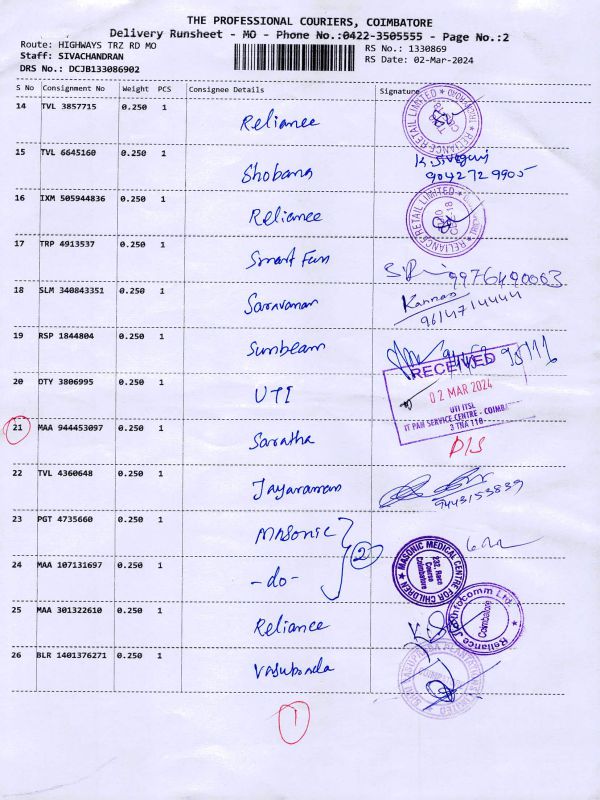 THE PROFESSIONAL COURIERS, COIMBATORE
Delivery Runsheet - MO - Phone No.:0422-3505555 - Page No.:2
Route: HIGHWAYS TRZ RD MO
RS No.: 1330869
Staff: SIVACHANDRAN
RS Date: 02-Mar-2024
DRS No.: DCJB133086902
S No Consignment No Weight PCS Consignee Details Signature
14 TVL 3857715 0.250 1 Reliance
RELIANCE RETAIL LIMITED
15 TVL 6645160 0.250 1 Shobana
9042729905
16 IXM 505944836 0.250 1 Reliance
RELIANCE RETAIL LIMITED
17 TRP 4913537 0.250 1 Smart Fun
9976490003
18 SLM 340843351 0.250 1 Saravanan Kannan
9614714444
19 RSP 1844804 0.250 1 Sunbeam
20 OTY 3806995 0.250 1 UTI
RECEIVED
02 MAR 2024
UTI ITSL
IT PAN SERVICE CENTRE - COIMB
3 TNA 110
21 MAA 944453097 0.250 1 Saratha D/S
22 TVL 4360648 0.250 1 Jayaraman
9443153839
23 PGT 4735660 0.250 1 MASONIC
2
MASONIC MEDICAL CENTRE FOR CHILDREN
232, Race Course Coimbatore
24 MAA 107131697 0.250 1 -do-
25 MAA 301322610 0.250 1 Reliance
Reliance Jio Infocomm Ltd.
Coimbatore
26 BLR 1401376271 0.250 1 Vasubala
1